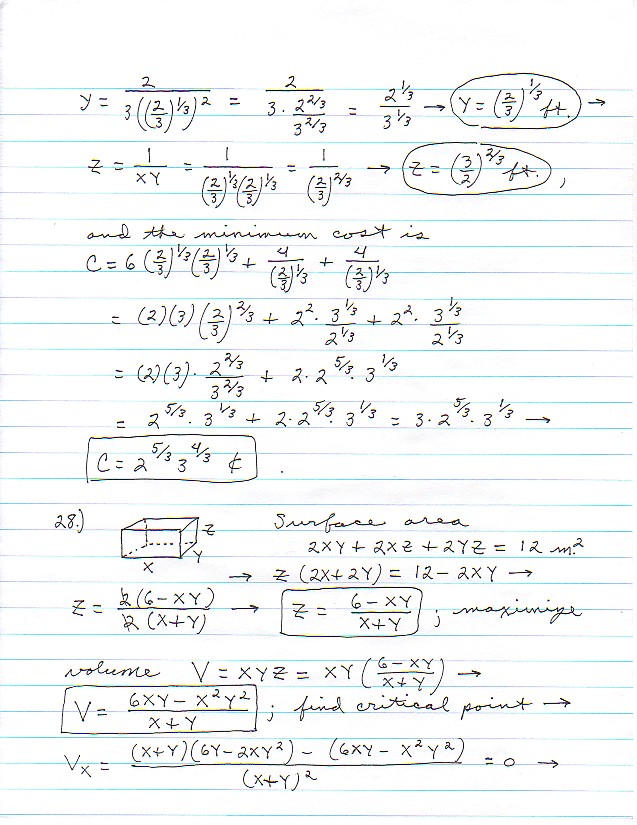 Y = 2 / (3((2/3)^(1/3))^2) = 2 / (3 · 2^(2/3)/3^(2/3)) = 2^(1/3)/3^(1/3) → Y = (2/3)^(1/3) ft. →
Z = 1/(XY) = 1 / ((2/3)^(1/3)(2/3)^(1/3)) = 1/(2/3)^(2/3) → Z = (3/2)^(2/3) ft. ,
and the minimum cost is
C = 6 (2/3)^(1/3) (2/3)^(1/3) + 4/(2/3)^(1/3) + 4/(2/3)^(1/3)
= (2)(3)(2/3)^(2/3) + 2^2 · 3^(1/3)/2^(1/3) + 2^2 · 3^(1/3)/2^(1/3)
= (2)(3) · 2^(2/3)/3^(2/3) + 2 · 2^(5/3) · 3^(1/3)
= 2^(5/3) · 3^(1/3) + 2 · 2^(5/3) · 3^(1/3) = 3 · 2^(5/3) · 3^(1/3) →
C = 2^(5/3) 3^(4/3) ¢ .
28.) Surface area
X Y Z
2XY + 2XZ + 2YZ = 12 m.^2
→ Z (2X + 2Y) = 12 - 2XY →
Z = 2(6 - XY) / 2(X+Y) → Z = (6 - XY)/(X + Y) ; maximize
volume V = XYZ = XY ((6 - XY)/(X + Y)) →
V = (6XY - X^2Y^2)/(X + Y) ; find critical point →
V_X = ((X+Y)(6Y - 2XY^2) - (6XY - X^2Y^2)) / (X+Y)^2 = 0 →